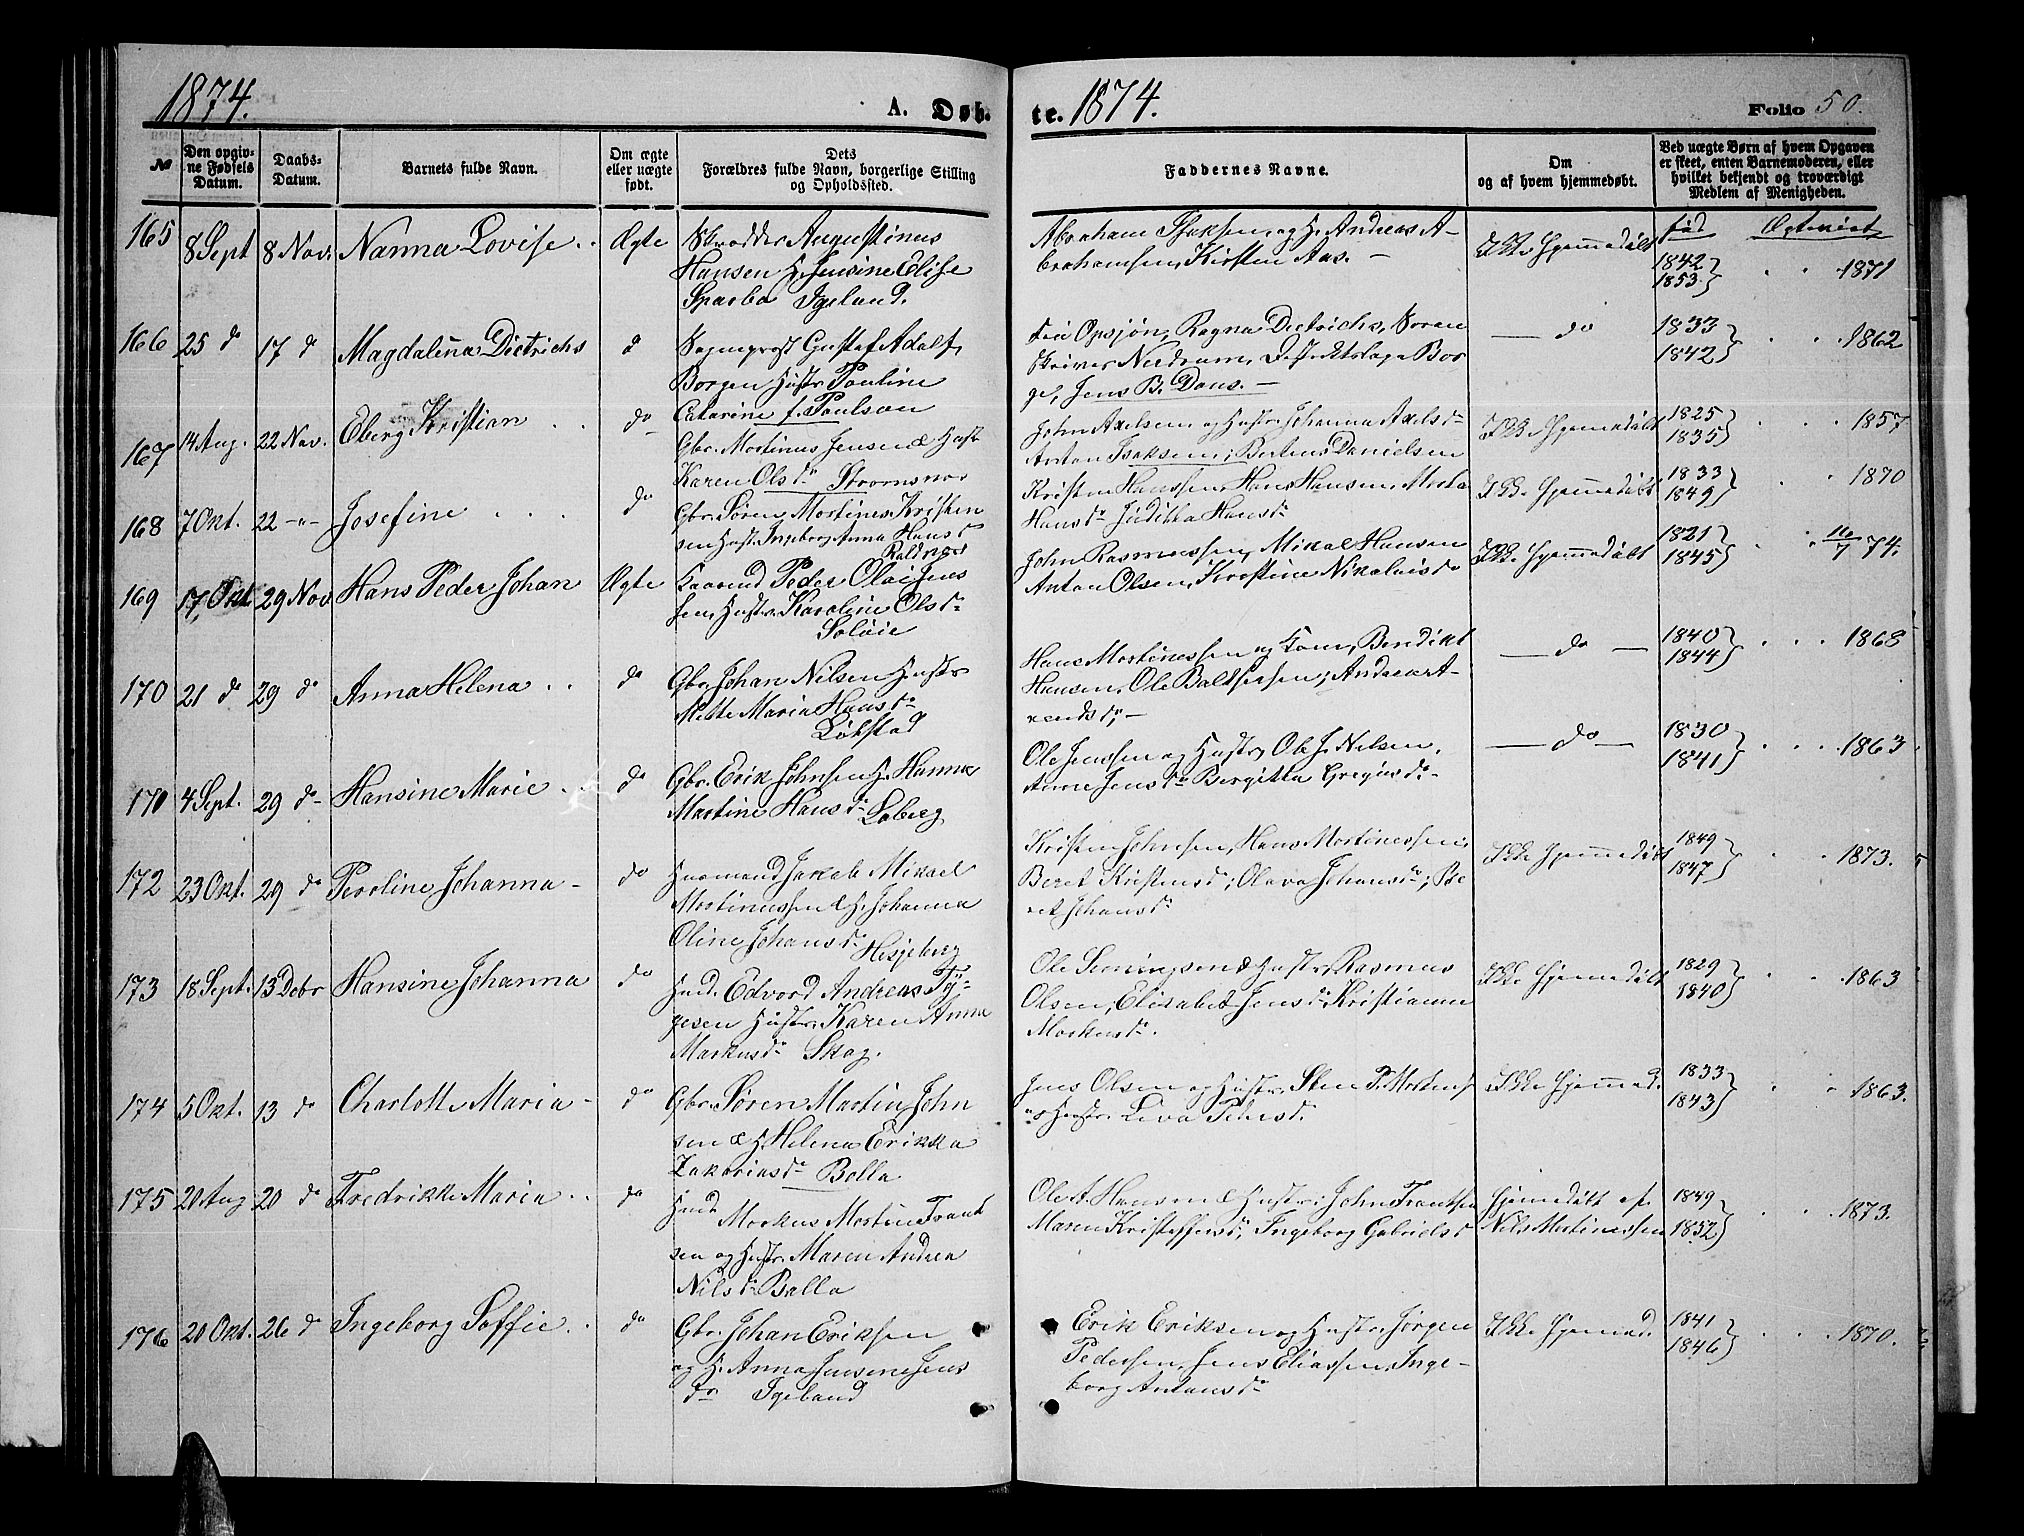 1874.
A. Døb-
te. 1874.
Folio 50.
№
Den opgivne Fødsels Datum.
Daabs-Datum.
Barnets fulde Navn.
Om ægte eller uægte født.
Dets Forældres fulde Navn, borgerlige Stilling og Opholdssted.
Faddernes Navne.
Om og af hvem hjemmedøbt.
Ved uægte Børn af hvem Opgaven er skeet, enten Barnemoderen, eller hvilket bekjendt og troværdigt Medlem af Menigheden.
165 8 Sept 8 Nov. Nanna Lovise Ægte
Augustinus
Hansen H. Jensine Elise
Igeland.
Abraham Isaksen og H. Andreas A-
brahamsen, Kirsten Aas. —
Ikke Hjemmedøbt
fød
1842
1853 } 1871
166 25 d 17 d Magdalena Dietrichs d
Sogneprest Gustaf Adolf
Borgen Hustr Pauline
Catarine f. Paulson
Ragna Dietrichs, Soren
skriver
Jens B.
— do
1833
1842 } 1862
167 14 Aug. 22 Nov. Eberg Kristian do
Gbr. Mortinus Jensen & Hustr
Karen Olsd
John Axelsen og Hustr. Johanna Axelsd
Anton Isaksen, Danielsen
Ikke Hjemmedøbt
1825
1835 } 1857
168 7 Okt. 22 -"- Josefine do
Gbr. Søren Mortines Kristen
sen Hust. Ingeborg Anna Hansd
Kristen Hanssen, Hans Hansen, Marta
Hansd Juditha Hansd
Ikke Hjemmedøbt
1833
1849 } 1870
169 17 Okt 29 Nov Hans Peder Johan Ægte
Peder Olai Jens
sen, Hustr. Karoline Olsd
Soløie
John Rasmussen, Mikal Hansen
Anton Olsen, Kristine Nikolaisd
Ikke Hjemmedøbt
1821
1845 } 16/7 74.
170 21 d 29 d Anna Helena do
Gbr. Johan Nilsen Hustr
Mette Maria Hansd
Løkstad
Hans Mortinessen og Kone, Bendikt
Hansen, Ole Baltsersen; Andrea Ar-
rentsd, —
— do —
1840
1844 } 1868
170 4 Sept. 29 d Hansine Marie do
Gbr. Erik Johnsen H. Hanna
Martine Hansd Loberg
Ole Jenssen og Hustr, Ole J. Nilsen,
Anne Jensd Bergitta Gregusd
— do —
1830
1841 } 1863
172 23 Okt. 29 do Peroline Johanna do
Huusmand Jakob Mikael
Mortinussen & H. Johanna
Oline Johansd Hesjeberg
Kristen Johnsen, Hans Mortinessen;
Beret Kristensd; Olava Johansd; Be
ret Johansd
Ikke Hjemmedøbt
1849
1847 } 1873.
173 18 Sept. 13 Debr Hansine Johanna do
Husd. Edvard Andreas Ty-
gesen Hustr. Karen Anna
Markusd Skog.
Ole Simingsen & Hustr, Rasmus
Olsen, Elisabet Jensd Kristianna
Markusd.
Ikke Hjemmedøbt
1829
1840 } 1863
174 5 Okt. 13 do Charlotte Maria do
Gbr. Søren Martin John
sen & H. Helena Erikka
Zakariasd Bolla
Jens Olsen og Hustr, Sten P. Mortens
og Hustr.
Ikke Hjemmed.
1833
1843 } 1863.
175 20 Aug 20 do Fredrikke Maria do
Husd
Markus Mortin Frant
sen og Hustr. Maren Andrea
Nilsd Bolla
Ole A. Hansen & Hustr: John Frantsen
Maren Kristoffersd, Ingeborg Gabrielsd
Hjemmedøbt af
Nils Mortinessen
1849
1852 } 1873.
176 20 Okt. 26 d Ingeborg Soffie do
Gbr. Johan Eriksen
og H. Anna Jensine Jens
dr Igeland
Erik Eriksen og Hustr, Jørgen
Pedersen, Jens Eliassen, Inge-
borg Antonsd
Ikke Hjemmed.
1841
1846 } 1870.